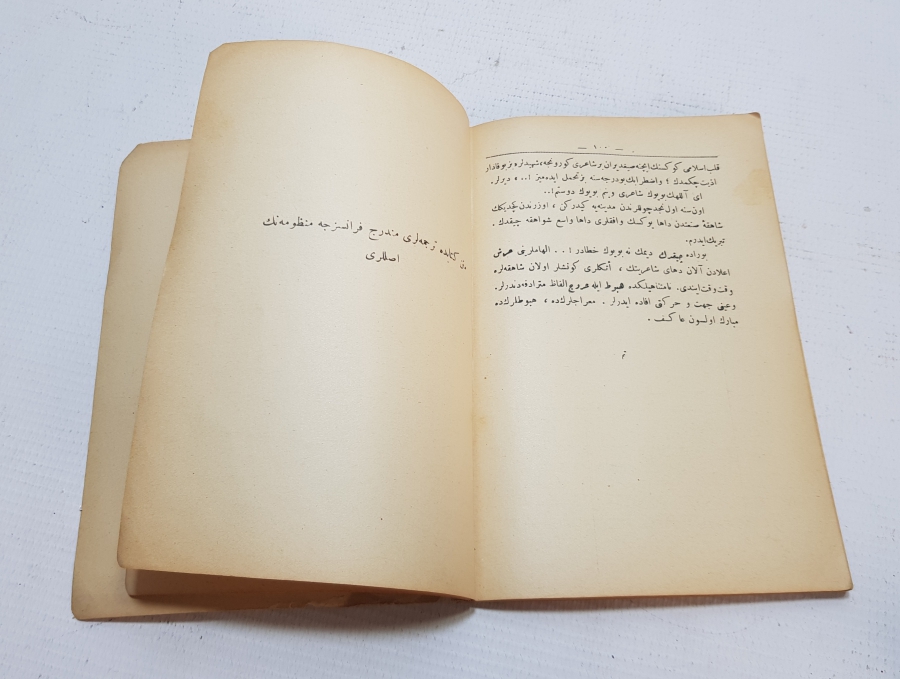 — ١٠٠ —
قلب اسلامی کوکسنك ایچنه صیغدیران بر شاعری کورونجه، شهیدلره بز بو قادار
اذیت چکمدك ؟ واضطرابك بودرجه سنه بز تحمل ایده میز !.. ه دیرلر.
ای آللهك بویوك شاعری وبنم بویوك دوستم!..
اون سنه اول نجد چوللرندن مدینه یه کیدرکن ، اوزرندن کچدیکك
شاهقۀ صنعتدن داها یوکسك وافقلری داها واسع شواهقه چیقدك .
تبریك ایدرم.
بوراده چیقدك دیمك نه بویوك خطادر ! . . الهاملرنی عرش
اعلادن آلان دهای شاعریتك ، اتکلری کونشلر اولان شاهقه لره
وقت وقت ایندی. نامتناهیلکده هبوط ایله عروج الفاظ مترادفه دندرلر.
وعینی جهت و حرکتی افاده ایدرلر . معراجلرك ده ، هبوطلرك ده
مبارك اولسون عاکف .
تم
کتابده ترجمه لری مندرج فرانسزجه منظومه نك
اصللری